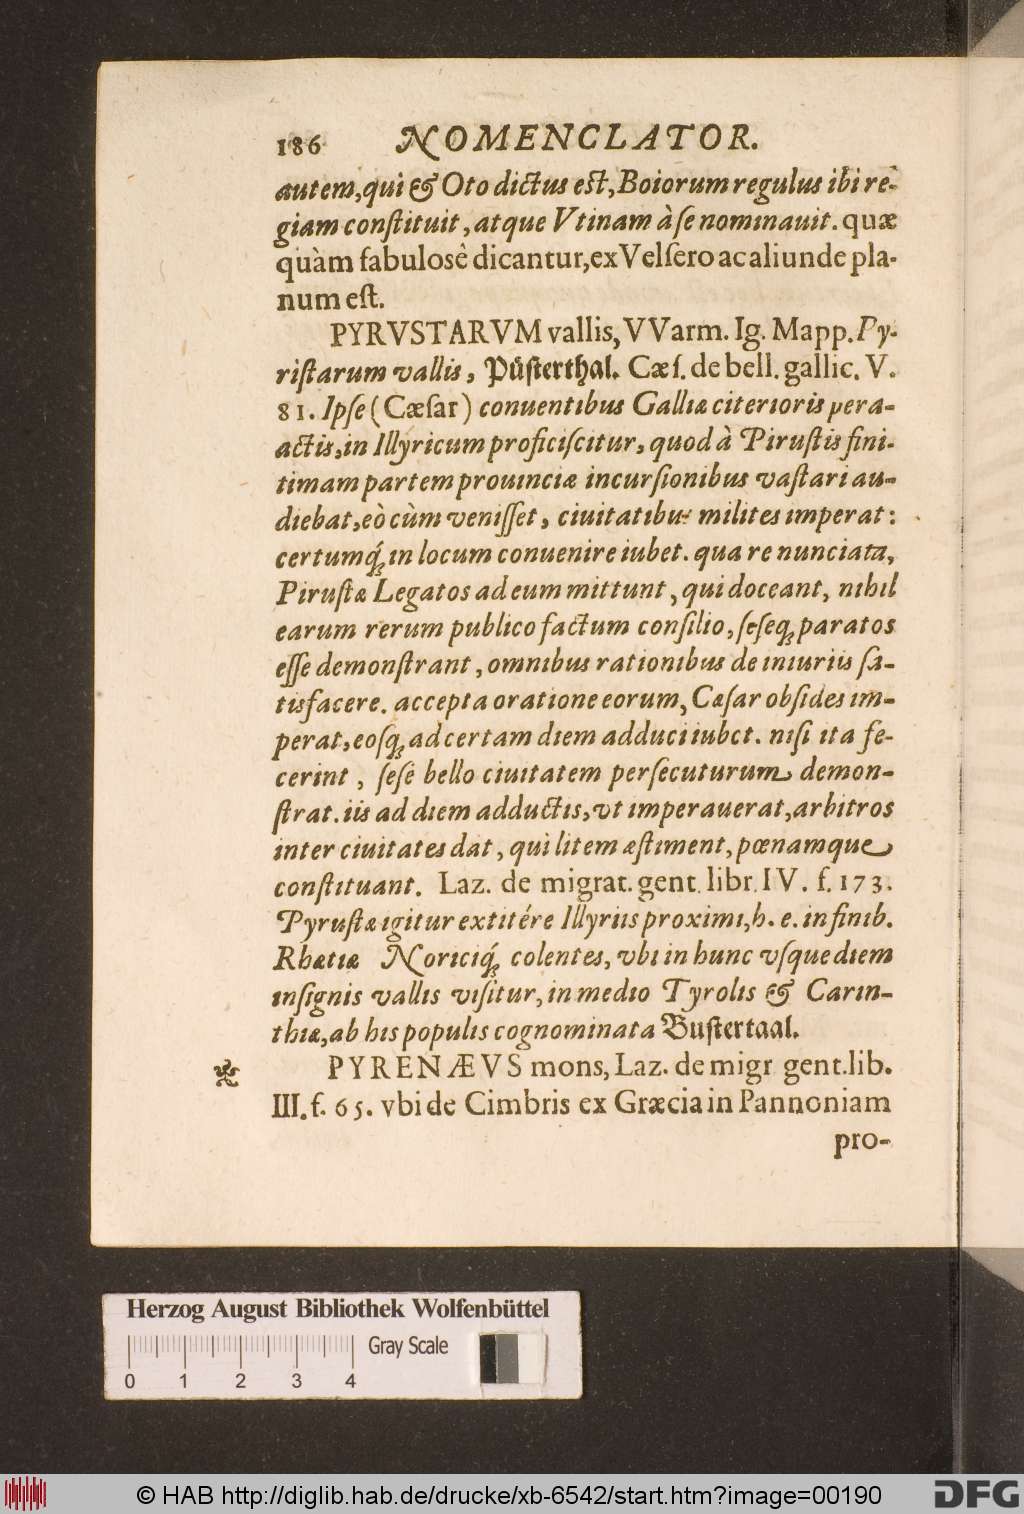 186 NOMENCLATOR.
autem, qui & Oto dictus est, Boiorum regulus ibi re-
giam constituit, atque Vtinam à se nominauit. quæ
quàm fabulosê dicantur, ex Velsero ac aliunde pla-
num est.
PYRVSTARVM vallis, VVarm. Ig. Mapp. Py-
ristarum vallis, Püsterthal. Cæs. de bell. gallic. V.
81. Ipse (Cæsar) conuentibus Galliæ citerioris pera-
actis, in Illyricum proficiscitur, quod à Pirustis fini-
timam partem prouinciæ incursionibus vastari au-
diebat, eò cùm venisset, ciuitatibus milites imperat:
certumq́; in locum conuenire iubet. qua re nunciata,
Pirustæ Legatos ad eum mittunt, qui doceant, nihil
earum rerum publico factum consilio, seseq; paratos
esse demonstrant, omnibus rationibus de iniuriis sa-
tisfacere. accepta oratione eorum, Cæsar obsides im-
perat, eosq; ad certam diem adduci iubet. nisi ita fe-
cerint, sesé bello ciuitatem persecuturum demon-
strat. iis ad diem adductis, vt imperauerat, arbitros
inter ciuitates dat, qui litem æstiment, pœnamque
constituant. Laz. de migrat. gent. libr. IV. f. 173.
Pyrustæ igitur extitére Illyriis proximi, h. e. in finib.
Rhætiæ Noriciq́; colentes, vbi in hunc vsque diem
insignis vallis visitur, in medio Tyrolis & Carin-
thiæ, ab his populis cognominata Bustertaal.
PYRENÆVS mons, Laz. de migr gent. lib.
III. f. 65. vbi de Cimbris ex Græcia in Pannoniam
pro-
Herzog August Bibliothek Wolfenbüttel
Gray Scale
0 1 2 3 4
© HAB http://diglib.hab.de/drucke/xb-6542/start.htm?image=00190
DFG